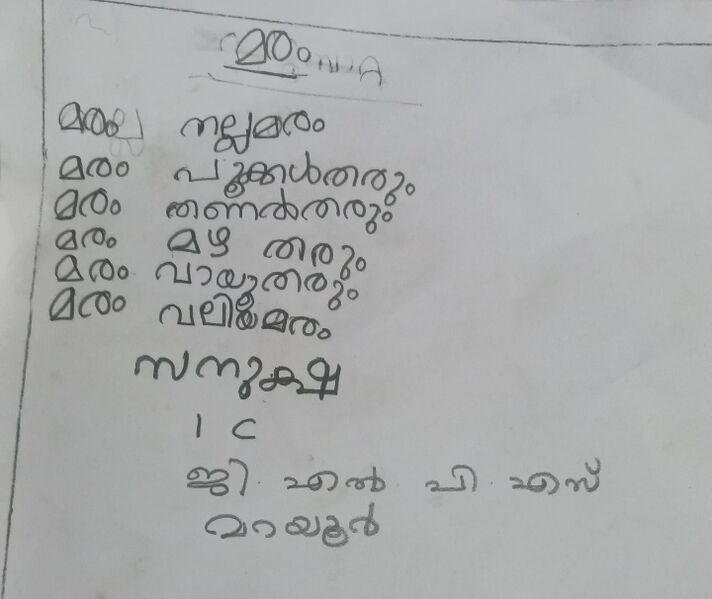 മരം
മരം നല്ലമരം
മരം പൂക്കൾതരും
മരം തണൽതരും
മരം മഴ തരും
മരം വായുതരും
മരം വലിയമരം
സനുകൃഷ്ണ
1 C
ജി. എൽ. പി. എസ്
വറയൂർ